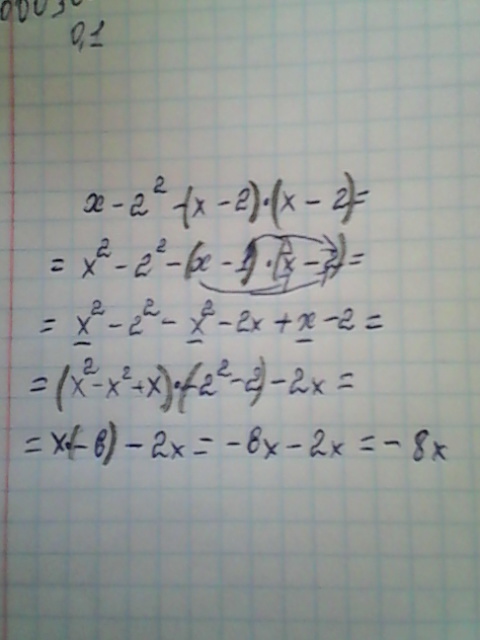 0,1
x - 2² - (x - 2)·(x - 2) =
= x² - 2² - (x - 1)·(x - 2) =
= x² - 2² - x² - 2x + x - 2 =
= (x² - x² + x)·(-2² - 2) - 2x =
= x·(-6) - 2x = -6x - 2x = - 8x